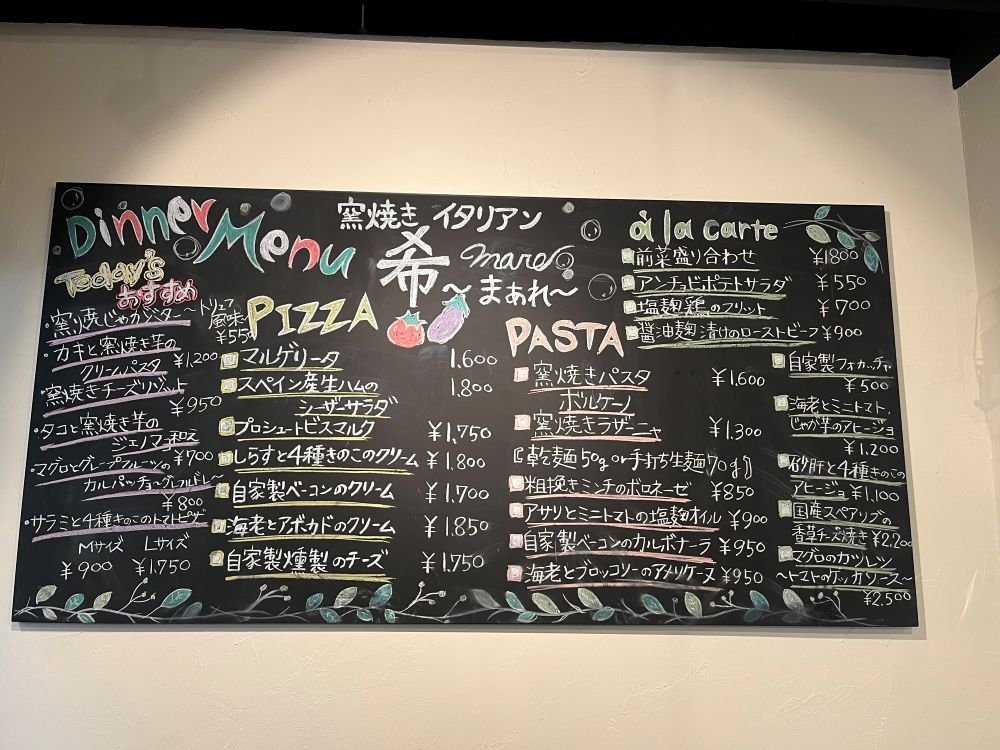 Dinner Menu
窯焼き イタリアン
希 mare
～まぁれ～
Today's
おすすめ
・窯り焼じゃがバター～トリュフ
風味～
¥550
・カキと窯焼き芋の
クリームパスタ ¥1,200
・窯焼きチーズリゾット
¥950
・タコと窯焼き芋の
ジェノマヨ和え
¥700
・マグロとグレープフルーツの
カルパッチョ
¥800
・サラミと4種きのこのトマトピザ
Mサイズ Lサイズ
¥900 ¥1,750
PIZZA
マルゲリータ 1,600
スペイン産生ハムの 1,800
シーザーサラダ
プロシュートビスマルク ¥1,750
しらすと4種きのこのクリーム ¥1,800
自家製ベーコンのクリーム ¥1,700
海老とアボカドのクリーム ¥1,850
自家製燻製のチーズ ¥1,750
PASTA
窯焼きパスタ ¥1,600
ボルケーノ
窯焼きラザニャ ¥1,300
〖乾麺50g or 手打ち生麺70g〗
粗挽きミンチのボロネーゼ ¥850
アサリとミニトマトの塩麹オイル ¥900
自家製ベーコンのカルボナーラ ¥950
海老とブロッコリーのアメリケーヌ ¥950
à la carte
前菜盛り合わせ ¥1800
アンチョビポテトサラダ ¥550
塩麹鶏のフリット ¥700
醤油麹漬けのローストビーフ ¥900
自家製フォカッチャ
¥500
海老とミニトマト、
じゃが芋のアヒージョ
¥1,200
砂肝と4種きのこの
アヒージョ ¥1,100
国産スペアリブの
香草チーズ焼き ¥2,200
マグロのカツレツ
～トマトのケッカソース～
¥2,500